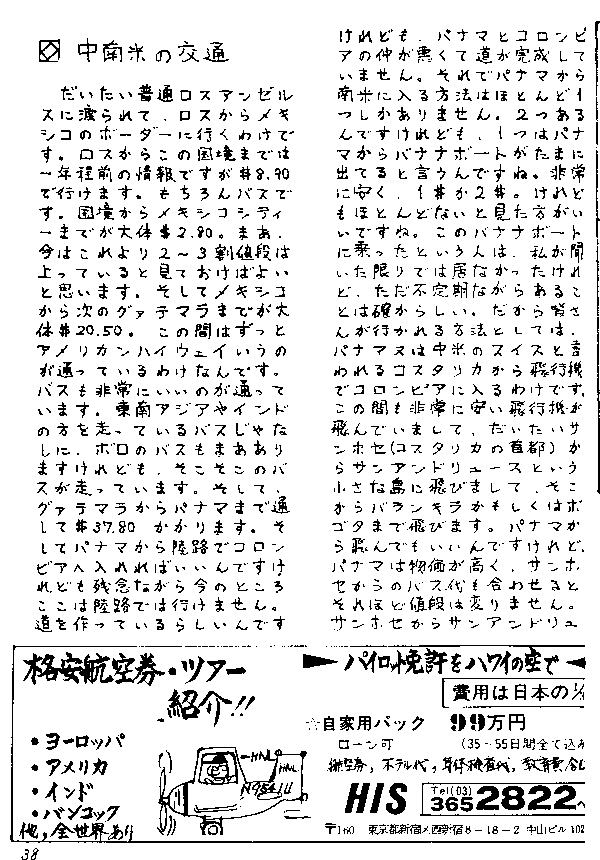 中南米の交通
だいたい普通ロスアンゼル
スに渡られて、ロスからメキ
シコのボーダーに行くわけで
す。ロスからこの国境までは
一年程前の情報ですが$8.90
で行けます。もちろんバスで
す。国境からメキシコシティ
ーまでが大体$2.80。まあ、
今はこれより2〜3割値段は
上っていると見ておけばよい
と思います。そしてメキシコ
から次のグァテマラまでが大
体$20.50。この間はずっと
アメリカンハイウェイいうの
が通っているわけなんです。
バスも非常にいいのが通って
います。東南アジアやインド
の方を走っているバスじゃな
しに、ボロのバスもまああり
ますけれども、そこそこのバ
スが走っています。そして、
グァテマラからパナマまで通
して$37.80かかります。そ
してパナマから陸路でコロン
ビアへ入れればいいんですけ
れども残念ながら今のところ
ここは陸路では行けません。
道を作っているらしいんです
けれども、パナマとコロンビ
アの仲が悪くて道が完成して
いません。それでパナマから
南米に入る方法はほとんど1
つしかありません。2つある
んですけれども、1つはパナ
マからバナナボートがたまに
出てると言うんですね。非常
に安く、1$か2$。けれど
もほとんどないと見た方がい
いですね。このバナナボート
に乗ったという人は、私が聞
いた限りでは居なかったけれ
ど、ただ不定期ながらあるこ
とは確からしい。だから皆さ
んが行かれる方法としては、
パナマヌは中米のスイスと言
われるコスタリカから飛行機
でコロンビアに入るわけです。
この間も非常に安い飛行機が
飛んでいまして、だいたいサ
ンホセ(コスタリカの首都)か
らサンアンドリュースという
小さな島に飛びまして、そこ
からバランキラかもしくはボ
ゴタまで飛びます。パナマか
ら飛んでもいいんですけれど、
パナマは物価が高く、サンホ
セからのバス代も合わせると
それほど値段は変りません。
サンホセからサンアンドリュ
格安航空券・ツアー
紹介!!
・ヨーロッパ
・アメリカ
・インド
・バンコック
他，全世界あり
HNL
HNL
パイロット免許をハワイの空で
費用は日本の
☆自家用パック 99万円
ローン可 (35〜55日間全て込み
航空券，ホテル代，身体検査代，教育費
HIS
Tel(03)
365 2822へ
〒160 東京都新宿区西新宿8-18-2 中山ビル102
38